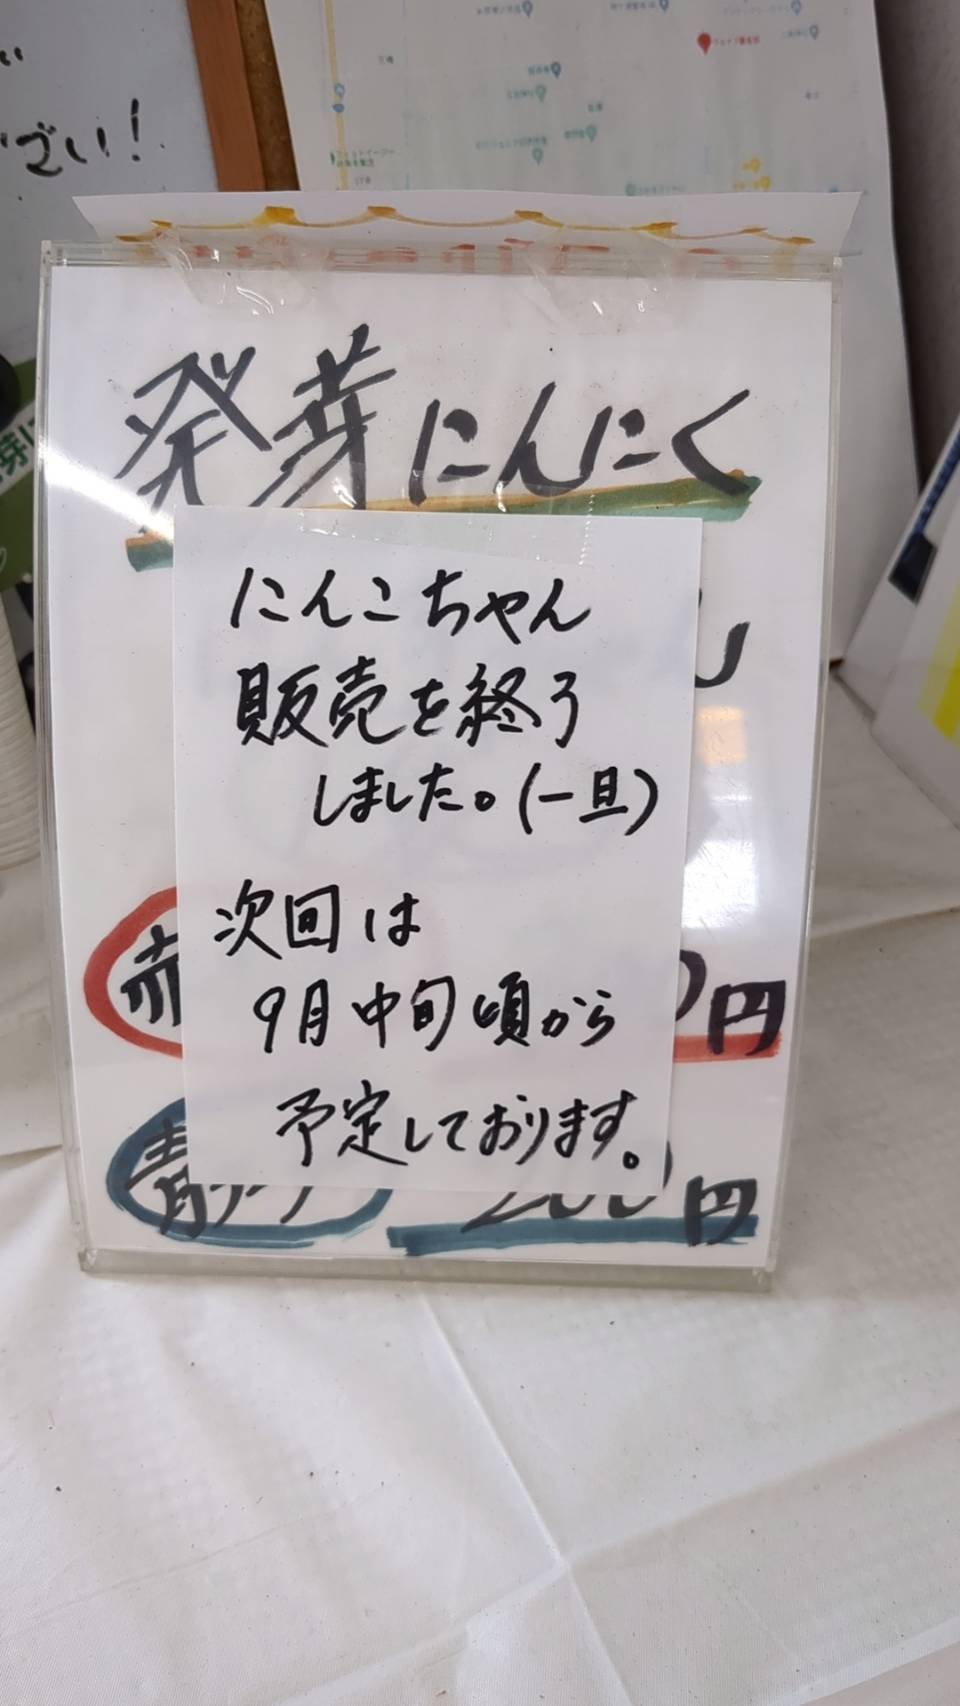 ござい！
発芽にんにく
にんこちゃん
販売を終了
しました。(一旦)
次回は
9月中旬頃から
予定しております。
円
円